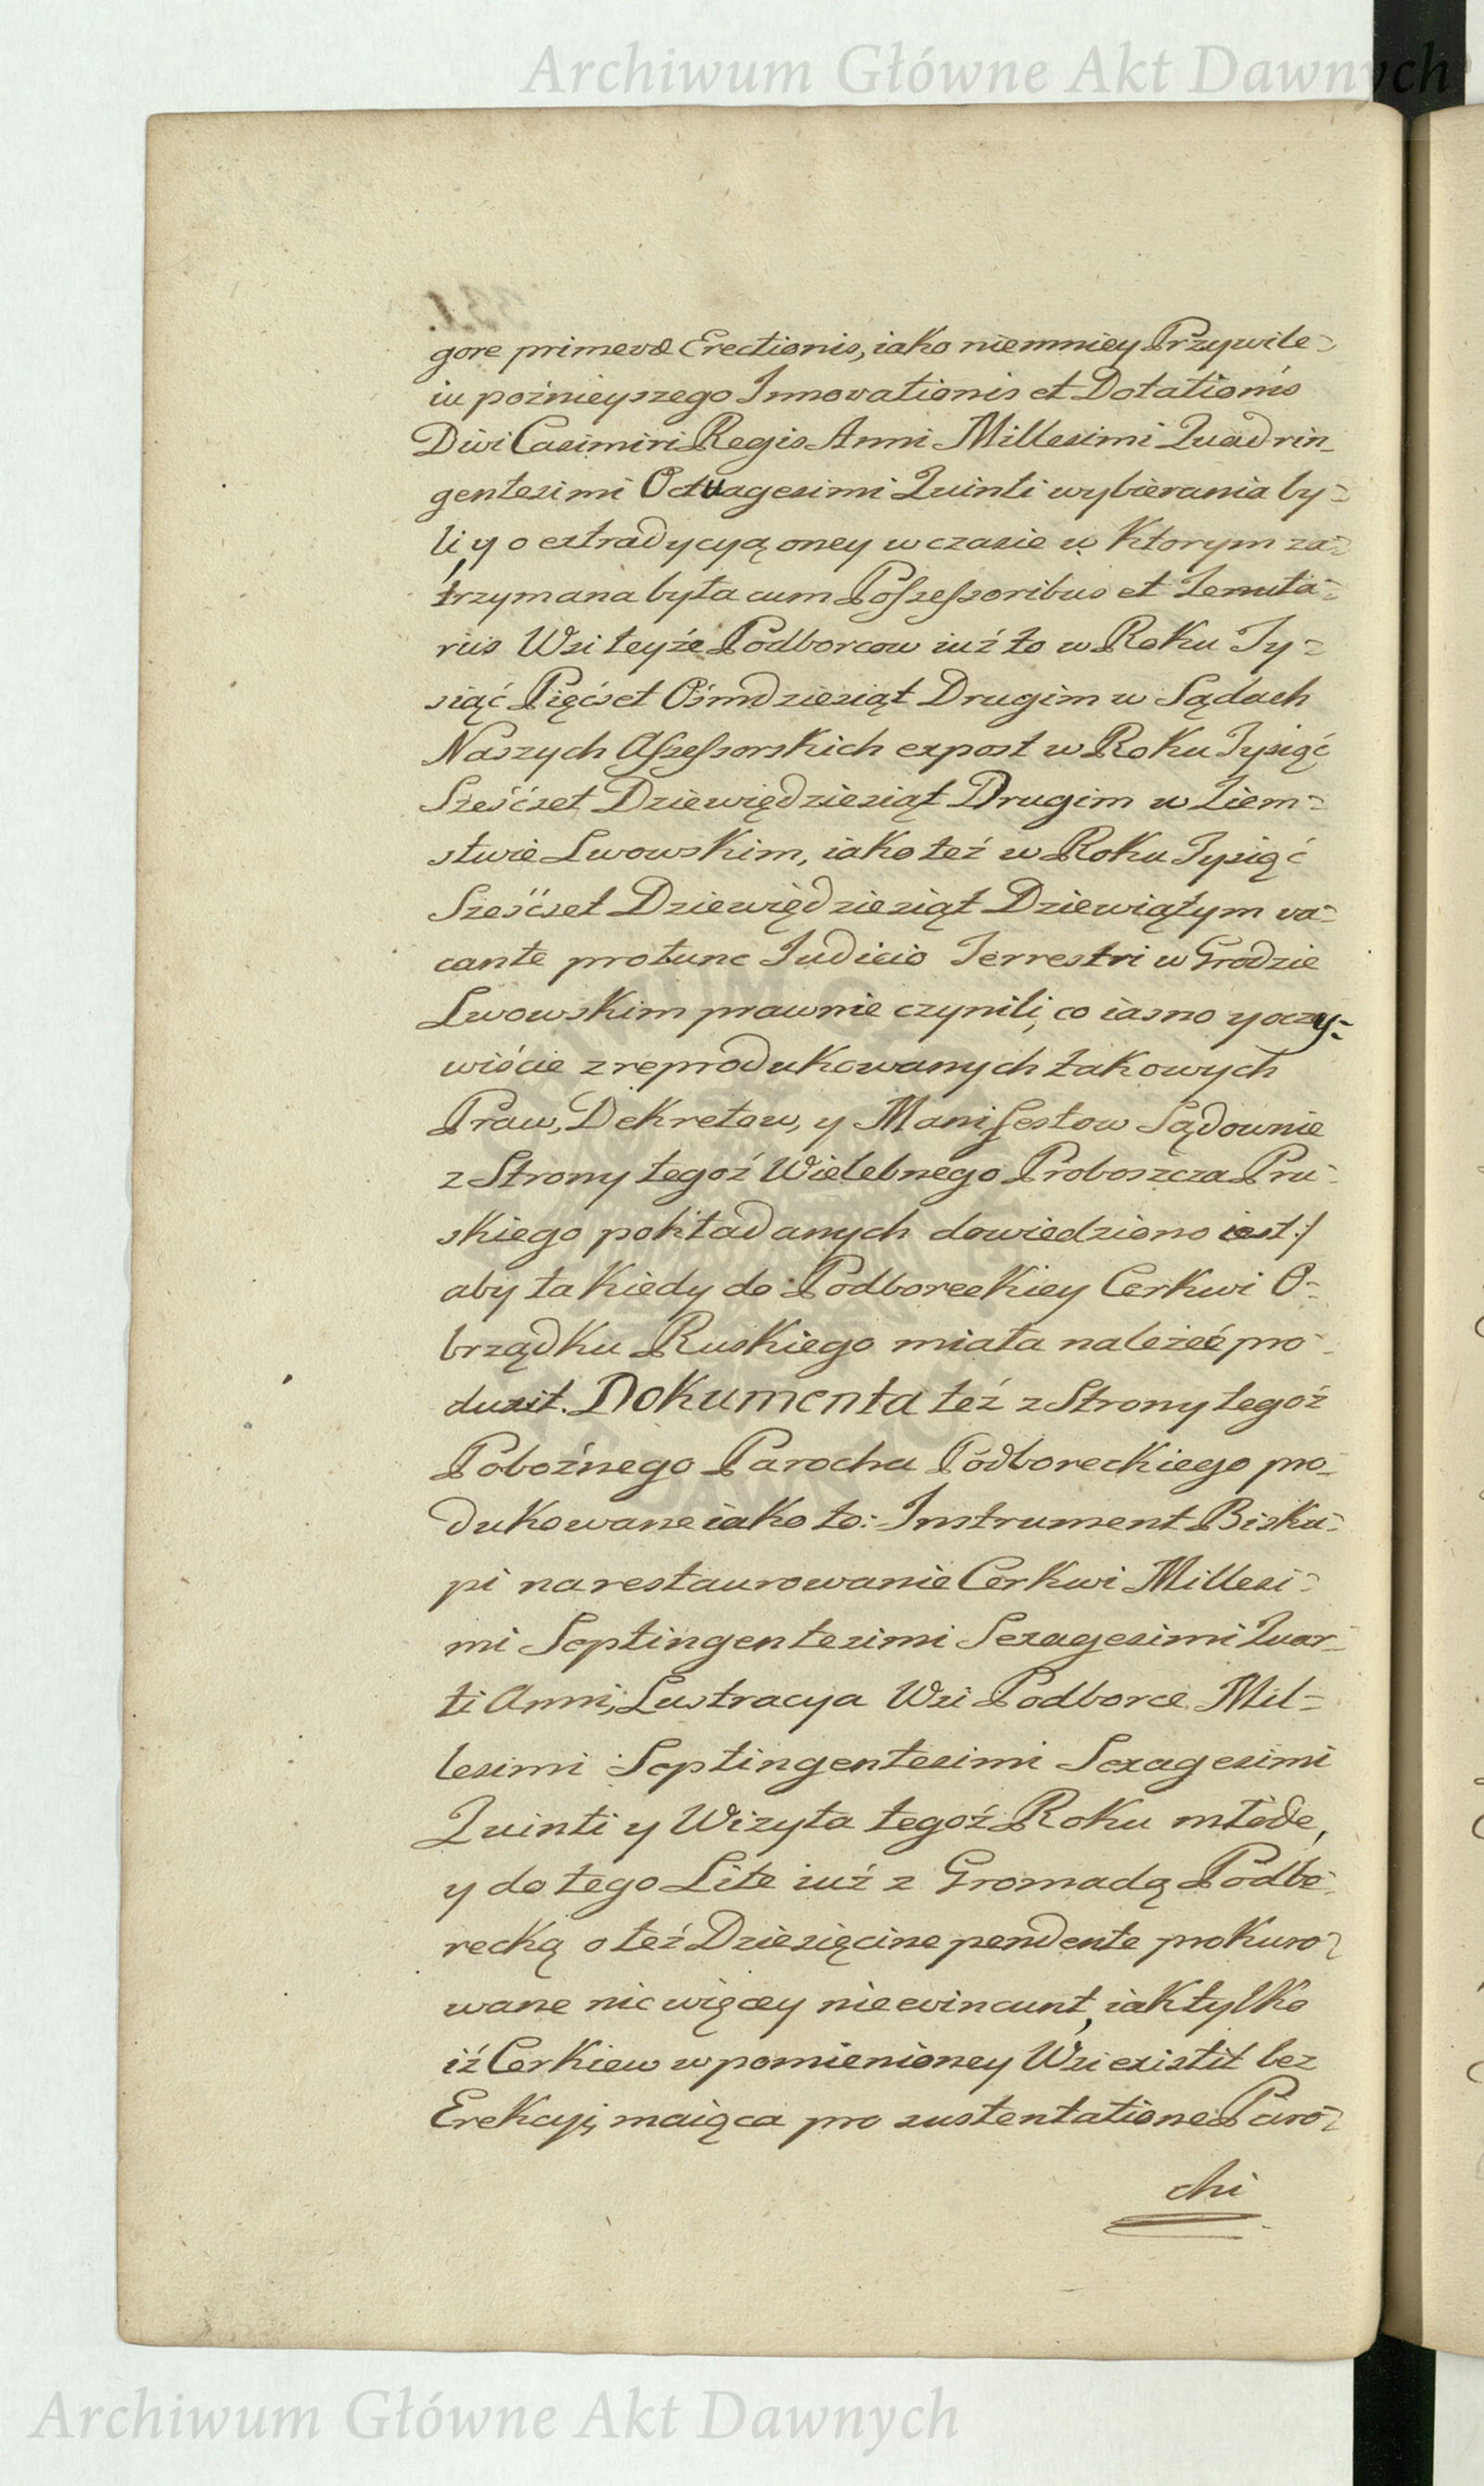 Archiwum Główne Akt Dawnych
gore primevæ Erectionis, iako niemniey Przywile=
iu poźnieyszego Innovationis et Dotationis
Divi Casimiri Regis Anni Millesimi Quadrin=
gentesimi Octuagesimi Quinti wybierania by=
li, y o extradycyą oney w czasie w Ktorym za=
trzymana była cum Possessoribus et Tenuta=
riis Wsi teyże Podborcow iuż to w Roku Ty=
siąć Pięćset Ośmdziesiąt Drugim w Sądach
Naszych Assessorskich expost w Roku Tysiąć
Sześćset Dziewiędziesiąt Drugim w Ziem=
stwie Lwowskim, iako też w Roku Tysiąć
Sześćset Dziewiędziesiąt Dziewiątym va=
cante protunc Judicio Terrestri w Grodzie
Lwowskim prawnie czynili, co iasno y oczy=
wiście z reprodukowanych takowych
Praw, Dekretow, y Manifestow Sądownie
z Strony tegoż Wielebnego Proboszcza Pru=
skiego pokładanych dowiedziono iest:/
aby ta kiedy do Podboreckiey Cerkwi O=
brządku Ruskiego miała należeć pro=
duxit. Dokumenta też z Strony tegoż
Pobożnego Parocha Podboreckiego pro=
dukowane iako to: Instrument Bisku=
pi na restaurowanie Cerkwi Millesi=
mi Septingentesimi Sexagesimi Quar=
ti Anni, Lustracya Wsi Podborce Mil=
lesimi Septingentesimi Sexagesimi
Quinti y Wizyta tegoż Roku młode,
y do tego Lite iuż z Gromadą Podbo=
recką o też Dziesięcine pendente prokuro=
wane nic więcey nie evincunt, iak tylko
iż Cerkiew w pomienioney Wsi existit bez
Erekcyi, maiąca pro sustentatione Paro=
chi
Archiwum Główne Akt Dawnych